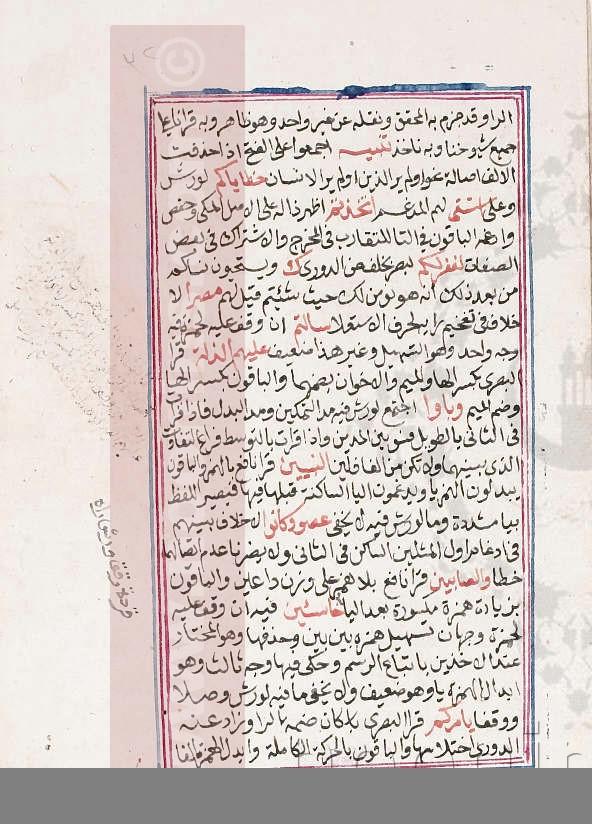 الراو وقد جزم به المحقق ونقله عن غير واحد وهو ظاهر وبه قرانا على
جميع شيوخنا وبه ناخذ تنبيه اجمعوا على الفتح اذا حذفت
الالف اصالة نحو اولم ير الذين اولم ير الانسان خطاياكم لورش
وعلى استسقى لهم المدغم اتخذتم اظهر ذاله على الاصل المكي وحفص
وادغمه الباقون في التا للتقارب في المخرج والاشتراك في بعض
الصفات نغفر لكم لبصر بخلف عن الدوري ك ويستحيون نساءكم
من بعد ذلك انه هو نومن لك حيث شئتم قيل لهم مصرا لا
خلاف في تفخيم را بحرف الاستعلا سالتم ان وقف عليه لحمزة ففيه
وجه واحد وهو التسهيل وغير هذا ضعيف عليهم الذلة قرا
البصري بكسر الها والميم والاخوان بضمهما والباقون بكسر الها
وضم الميم وباوا اجتمع لورش فيه مد التمكين ومد البدل فاذا قرات
في الثاني بالطويل فسو بين المدين واذا قرات بالتوسط فراع التفاوت
الذي بينهما ولا تكن من الغافلين النبيين قرا نافع بالهمز والباقون
يبدلون الهمز يا ويدغمون اليا الساكنة قبلها فيها فيصير اللفظ
بيا مشددة وما لورش فيه لا يخفى عصوا وكانوا لا خلاف بينهم
في ادغام اول المثلين الساكن في الثاني ولا يضرنا عدم اتصالهما
خطا والصابين قرا نافع بلا همز على وزن داعين والباقون
بزيادة همزة مكسورة بعد البا خاسئين فيه ان وقف عليه
لحمزة وجهان تسهيل همزه بين بين وحذفها وهو المختار
عند الاخذين باتباع الرسم وحكي فيها وجه ثالث وهو
ابدال الهمزة يا وهو ضعيف ولا يخفى ما فيه لورش وصلا
ووقفا يامركم قرا البصري باسكان ضمة الرا وزاد عنه
الدوري اختلاسها والباقون بالحركة الكاملة وابدال همزه الفا